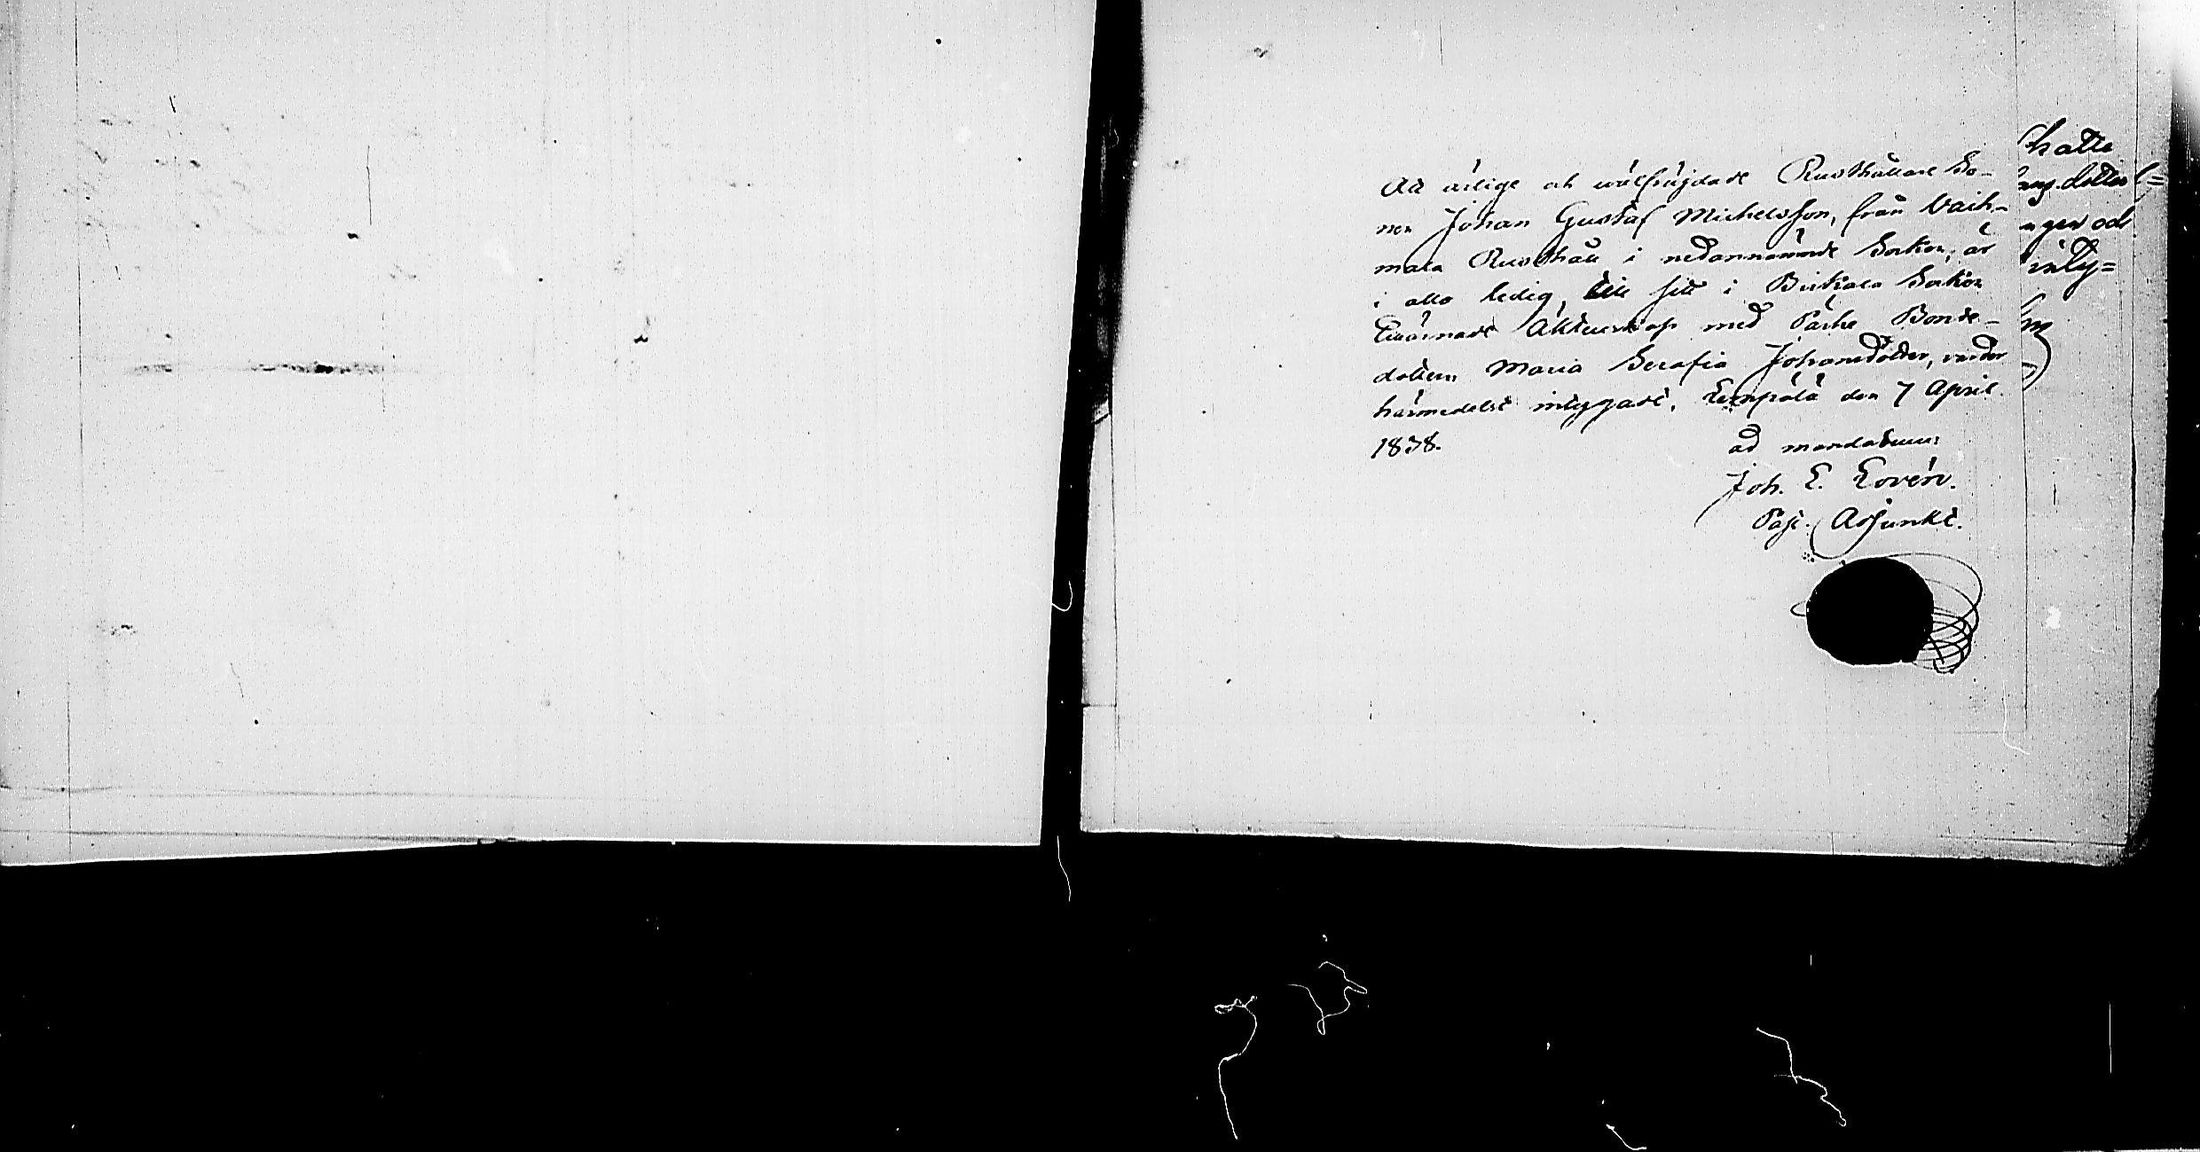 Att ärlige och wälfrägdade Rusthållare So-
nen Johan Gustaf Michelsson, från Vaih-
mala Rusthåll i nedannämnde Socken, är
i allo ledig, till sitt i Birkala Socken
ärnade Äktenskap med Bonde-
dottern Maria Serafia Johansdotter, varder
härmedelst intygadt. Lempälä den 7 April
1838.
ad mandatum:
Joh. E. Lovén.
Past. Adjunkt.
hatte
dotter
ger och
inty=